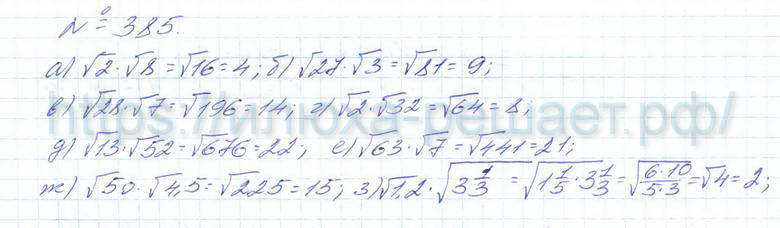 № 385.
а) √2·√8 = √16 = 4; б) √27·√3 = √81 = 9;
в) √28·√7 = √196 = 14; г) √2·√32 = √64 = 8;
https://илюха-решает.рф/
д) √13·√52 = √676 = 22; е) √63·√7 = √441 = 21;
ж) √50·√4,5 = √225 = 15; з) √1,2·√3 1/3 = √1 1/5·3 1/3 = √6·10/5·3 = √4 = 2;